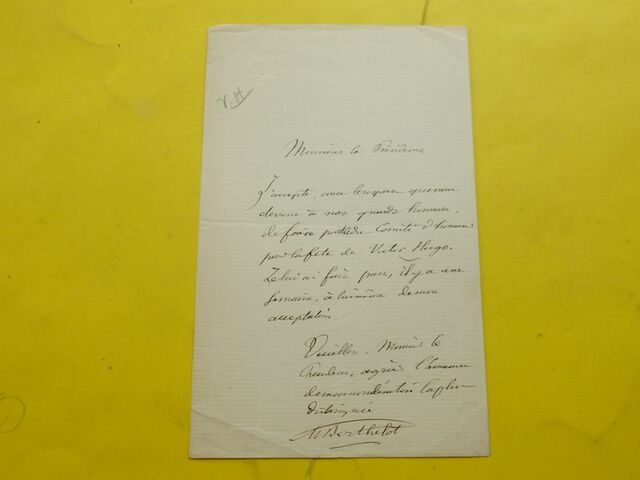 V. H
Monsieur le Président
J'accepte, avec le respect que nous
devons à nos grands hommes,
de faire partie du Comité d'honneur
pour la fête de Victor Hugo.
Je lui ai fait part, il y a une
semaine, à lui même de mon
acceptation
Veuillez, Monsieur le
Président, agréer l'assurance
de ma considération la plus
distinguée
M Berthelot